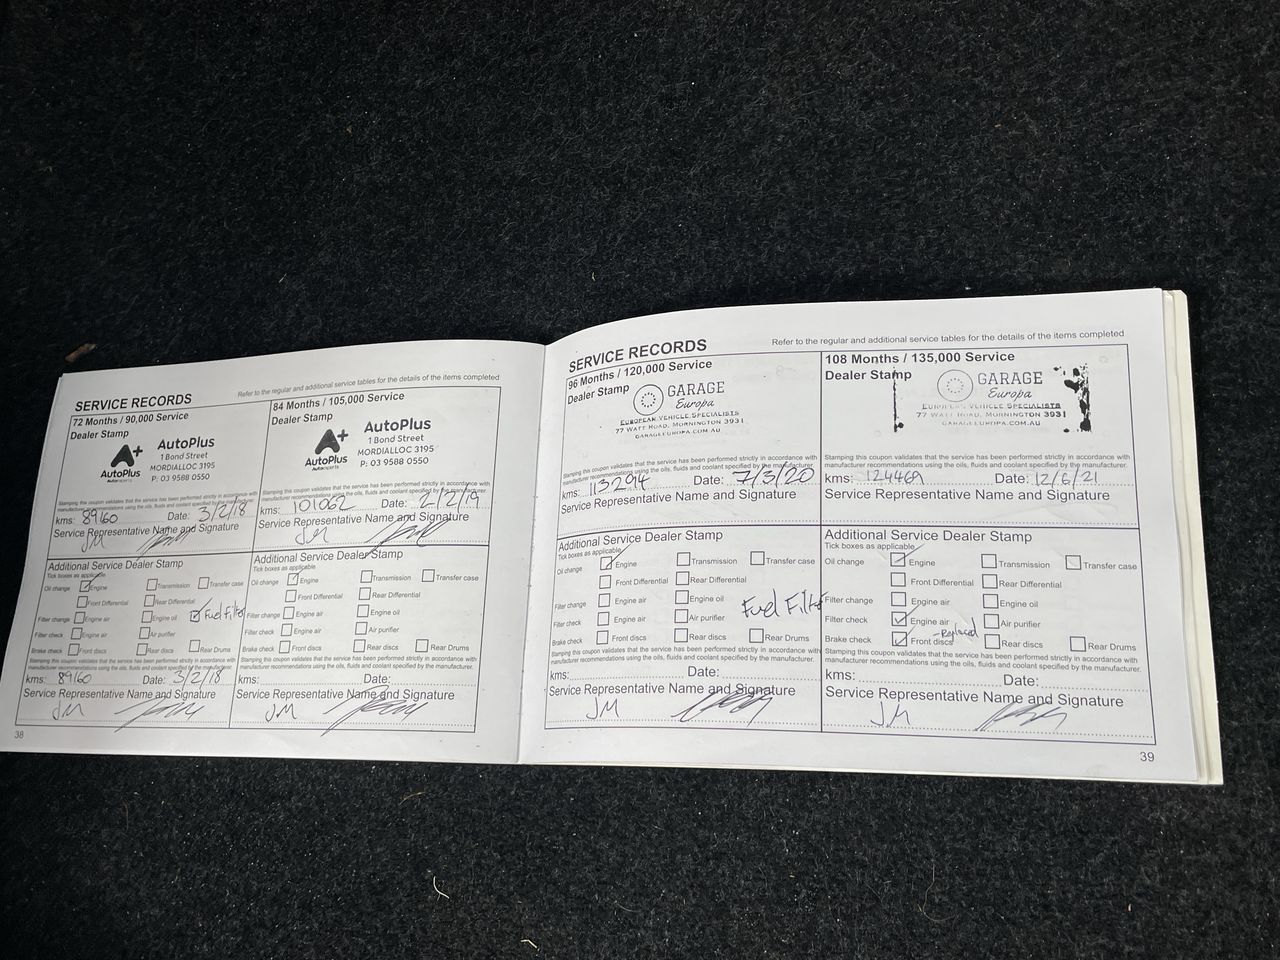 SERVICE RECORDS
Refer to the regular and additional service tables for the details of the items completed
72 Months / 90,000 Service
Dealer Stamp
A+
AutoPlus
AutoPlus
1 Bond Street
MORDIALLOC 3195
P: 03 9588 0550
Stamping this coupon validates that the service has been performed strictly in accordance with
manufacturer recommendations using the oils, fluids and coolant specified by the manufacturer.
kms: 89160 Date: 3/2/18
Service Representative Name and Signature
JM
Additional Service Dealer Stamp
Tick boxes as applicable
Oil change Engine Transmission Transfer case
Front Differential Rear Differential
Filter change Engine air Engine oil Fuel Filter
Filter check Engine air Air purifier
Brake check Front discs Rear discs Rear Drums
Stamping this coupon validates that the service has been performed strictly in accordance with
manufacturer recommendations using the oils, fluids and coolant specified by the manufacturer.
kms: 89160 Date: 3/2/18
Service Representative Name and Signature
JM
38
84 Months / 105,000 Service
Dealer Stamp
A+
AutoPlus
AutoPlus
1 Bond Street
MORDIALLOC 3195
P: 03 9588 0550
Stamping this coupon validates that the service has been performed strictly in accordance with
manufacturer recommendations using the oils, fluids and coolant specified by the manufacturer.
kms: 101062 Date: 2/2/19
Service Representative Name and Signature
JM
Additional Service Dealer Stamp
Tick boxes as applicable
Oil change Engine Transmission Transfer case
Front Differential Rear Differential
Filter change Engine air Engine oil
Filter check Engine air Air purifier
Brake check Front discs Rear discs Rear Drums
Stamping this coupon validates that the service has been performed strictly in accordance with
manufacturer recommendations using the oils, fluids and coolant specified by the manufacturer.
kms: Date:
Service Representative Name and Signature
JM
SERVICE RECORDS
Refer to the regular and additional service tables for the details of the items completed
96 Months / 120,000 Service
Dealer Stamp
GARAGE
Europa
EUROPEAN VEHICLE SPECIALISTS
77 WATT ROAD, MORNINGTON 3931
GARAGEEUROPA.COM.AU
Stamping this coupon validates that the service has been performed strictly in accordance with
manufacturer recommendations using the oils, fluids and coolant specified by the manufacturer.
kms: Date: 7/3/20
Service Representative Name and Signature
Additional Service Dealer Stamp
Tick boxes as applicable
Oil change Engine Transmission Transfer case
Front Differential Rear Differential
Filter change Engine air Engine oil Fuel Filter
Filter check Engine air Air purifier
Brake check Front discs Rear discs Rear Drums
Stamping this coupon validates that the service has been performed strictly in accordance with
manufacturer recommendations using the oils, fluids and coolant specified by the manufacturer.
kms: Date:
Service Representative Name and Signature
JM
108 Months / 135,000 Service
Dealer Stamp
GARAGE
Europa
EUROPEAN VEHICLE SPECIALISTS
77 WATT ROAD, MORNINGTON 3931
GARAGEEUROPA.COM.AU
Stamping this coupon validates that the service has been performed strictly in accordance with
manufacturer recommendations using the oils, fluids and coolant specified by the manufacturer.
kms: 124469 Date: 12/6/21
Service Representative Name and Signature
Additional Service Dealer Stamp
Tick boxes as applicable
Oil change Engine Transmission Transfer case
Front Differential Rear Differential
Filter change Engine air Engine oil
Filter check Engine air Air purifier
- Replaced
Brake check Front discs Rear discs Rear Drums
Stamping this coupon validates that the service has been performed strictly in accordance with
manufacturer recommendations using the oils, fluids and coolant specified by the manufacturer.
kms: Date:
Service Representative Name and Signature
JM
39